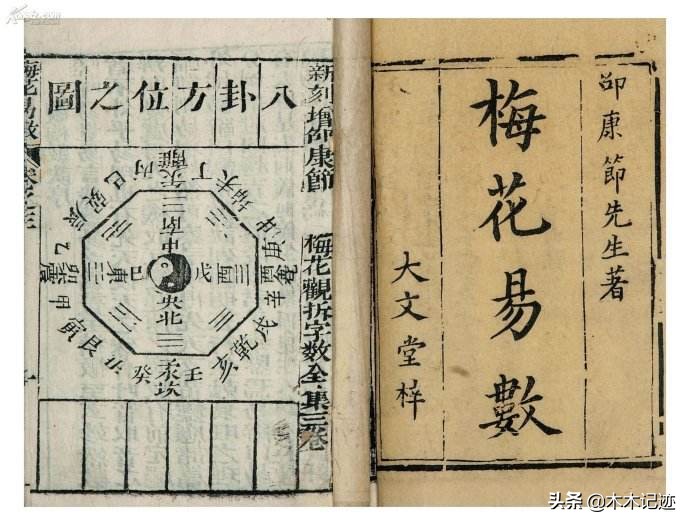 邵康節先生著
梅花易數
大文堂梓
新刻增邵康節
梅花觀拆字數全集三卷
八卦方位之圖
丙午離丁
未坤申
庚酉兌辛
戌乾亥
壬子坎癸
丑艮寅
甲卯震乙
辰巽巳
南
中
東
己
戊
西
央
北
梅花易數
卷之三
头条 @木木记迹